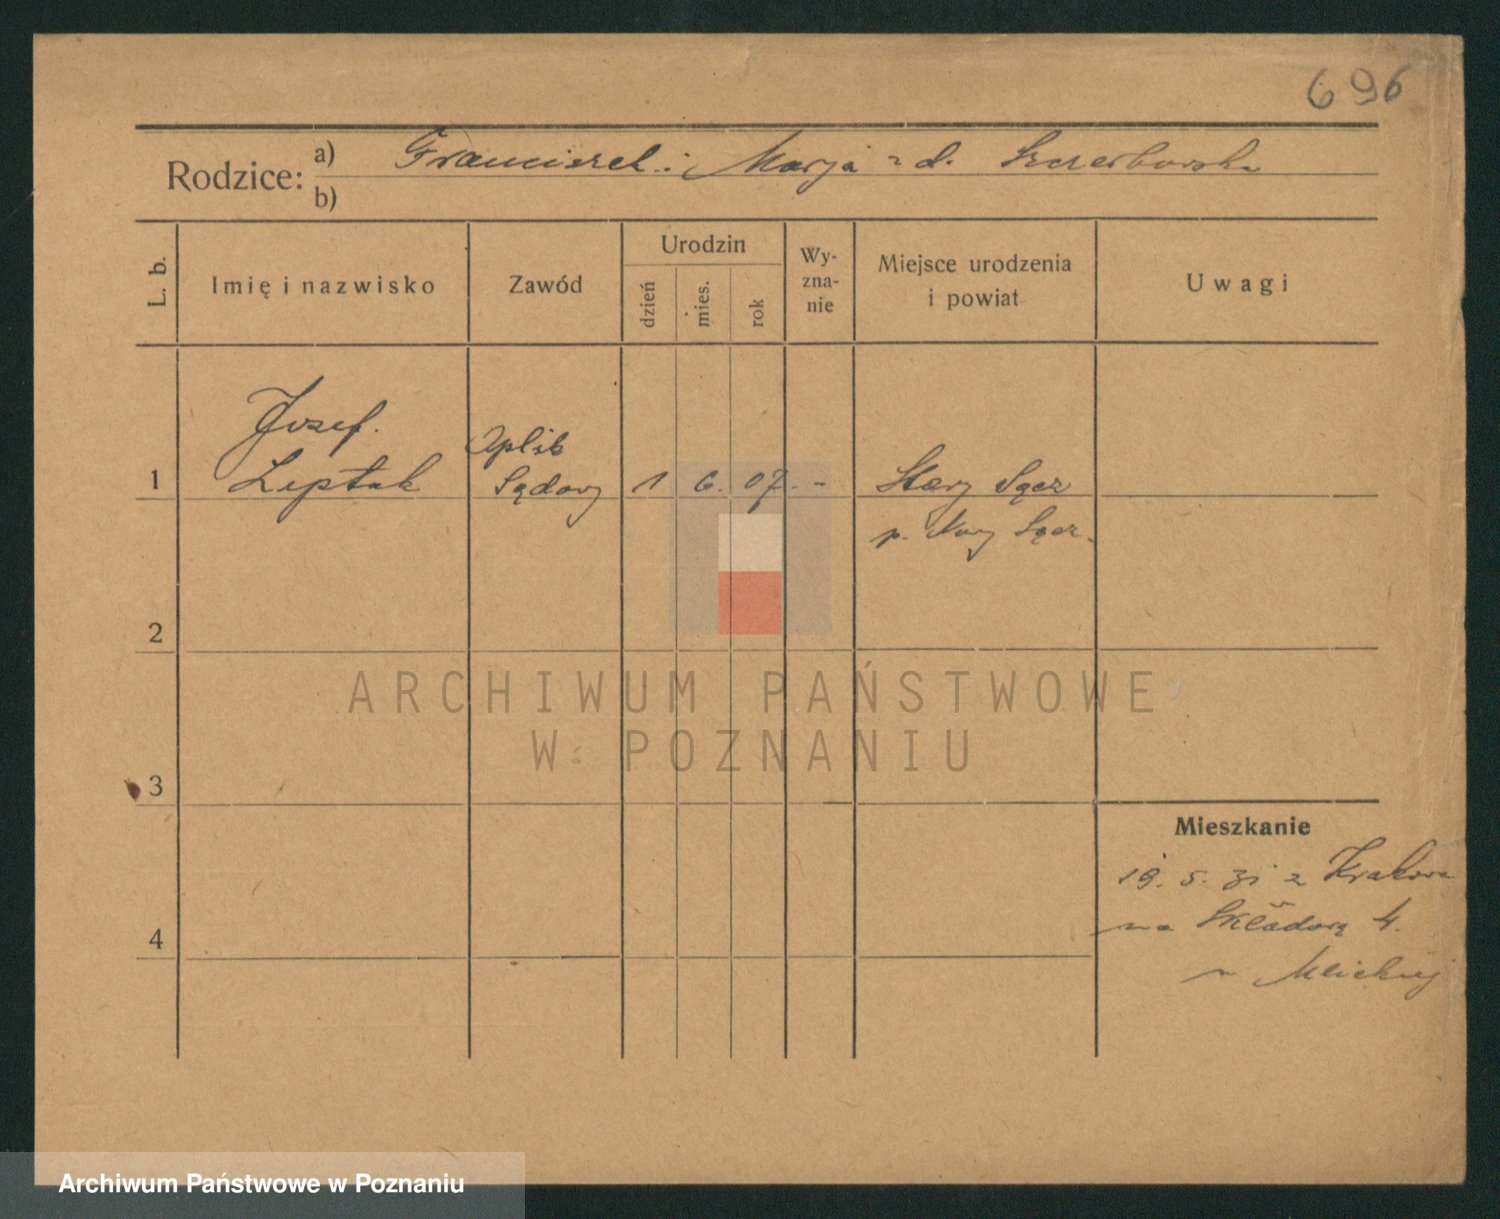 696
Rodzice:
a) Franciszek i Marja z d. Szczerbowska
b)
L. b.
Imię i nazwisko
Zawód
Urodzin
dzień
mies.
rok
Wy-
zna-
nie
Miejsce urodzenia
i powiat
Uwagi
Józef.
Leptak
Aplik
Sądowy
1 1 6. 07. -
Stary Sącz
p. Nowy Sącz.
2
3
4
ARCHIWUM PAŃSTWOWE
W POZNANIU
Mieszkanie
19. 5. 31 z Krakowa
na Składową 4.
Archiwum Państwowe w Poznaniu